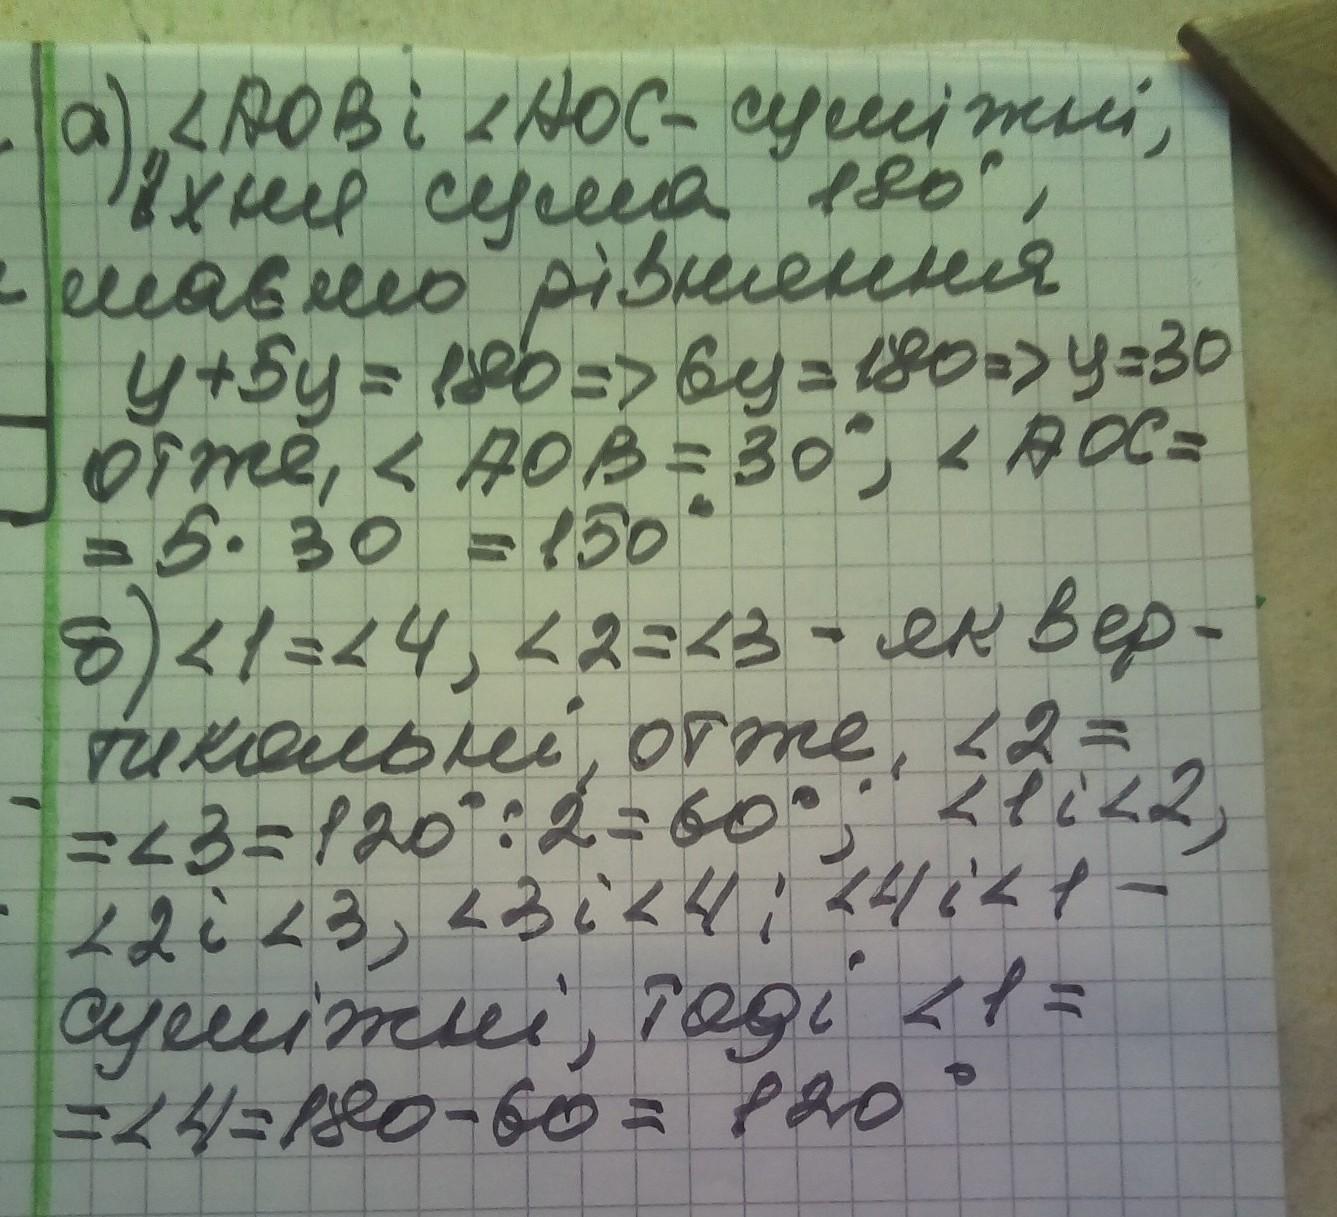 а) <АОВ і <АОС- суміжні,
їхня сума 180°,
маємо рівняння
у+5у=180=>6у=180=>у=30
отже, < АОВ = 30°, < АОС=
= 5· 30 =150°
б) <1=<4, <2=<3 - як вер-
тикальні, отже, <2=
=<3=120°:2=60°; <1і<2,
<2і <3, <3і<4; <4і<1 -
суміжні, тоді <1=
=<4=180-60= 120°